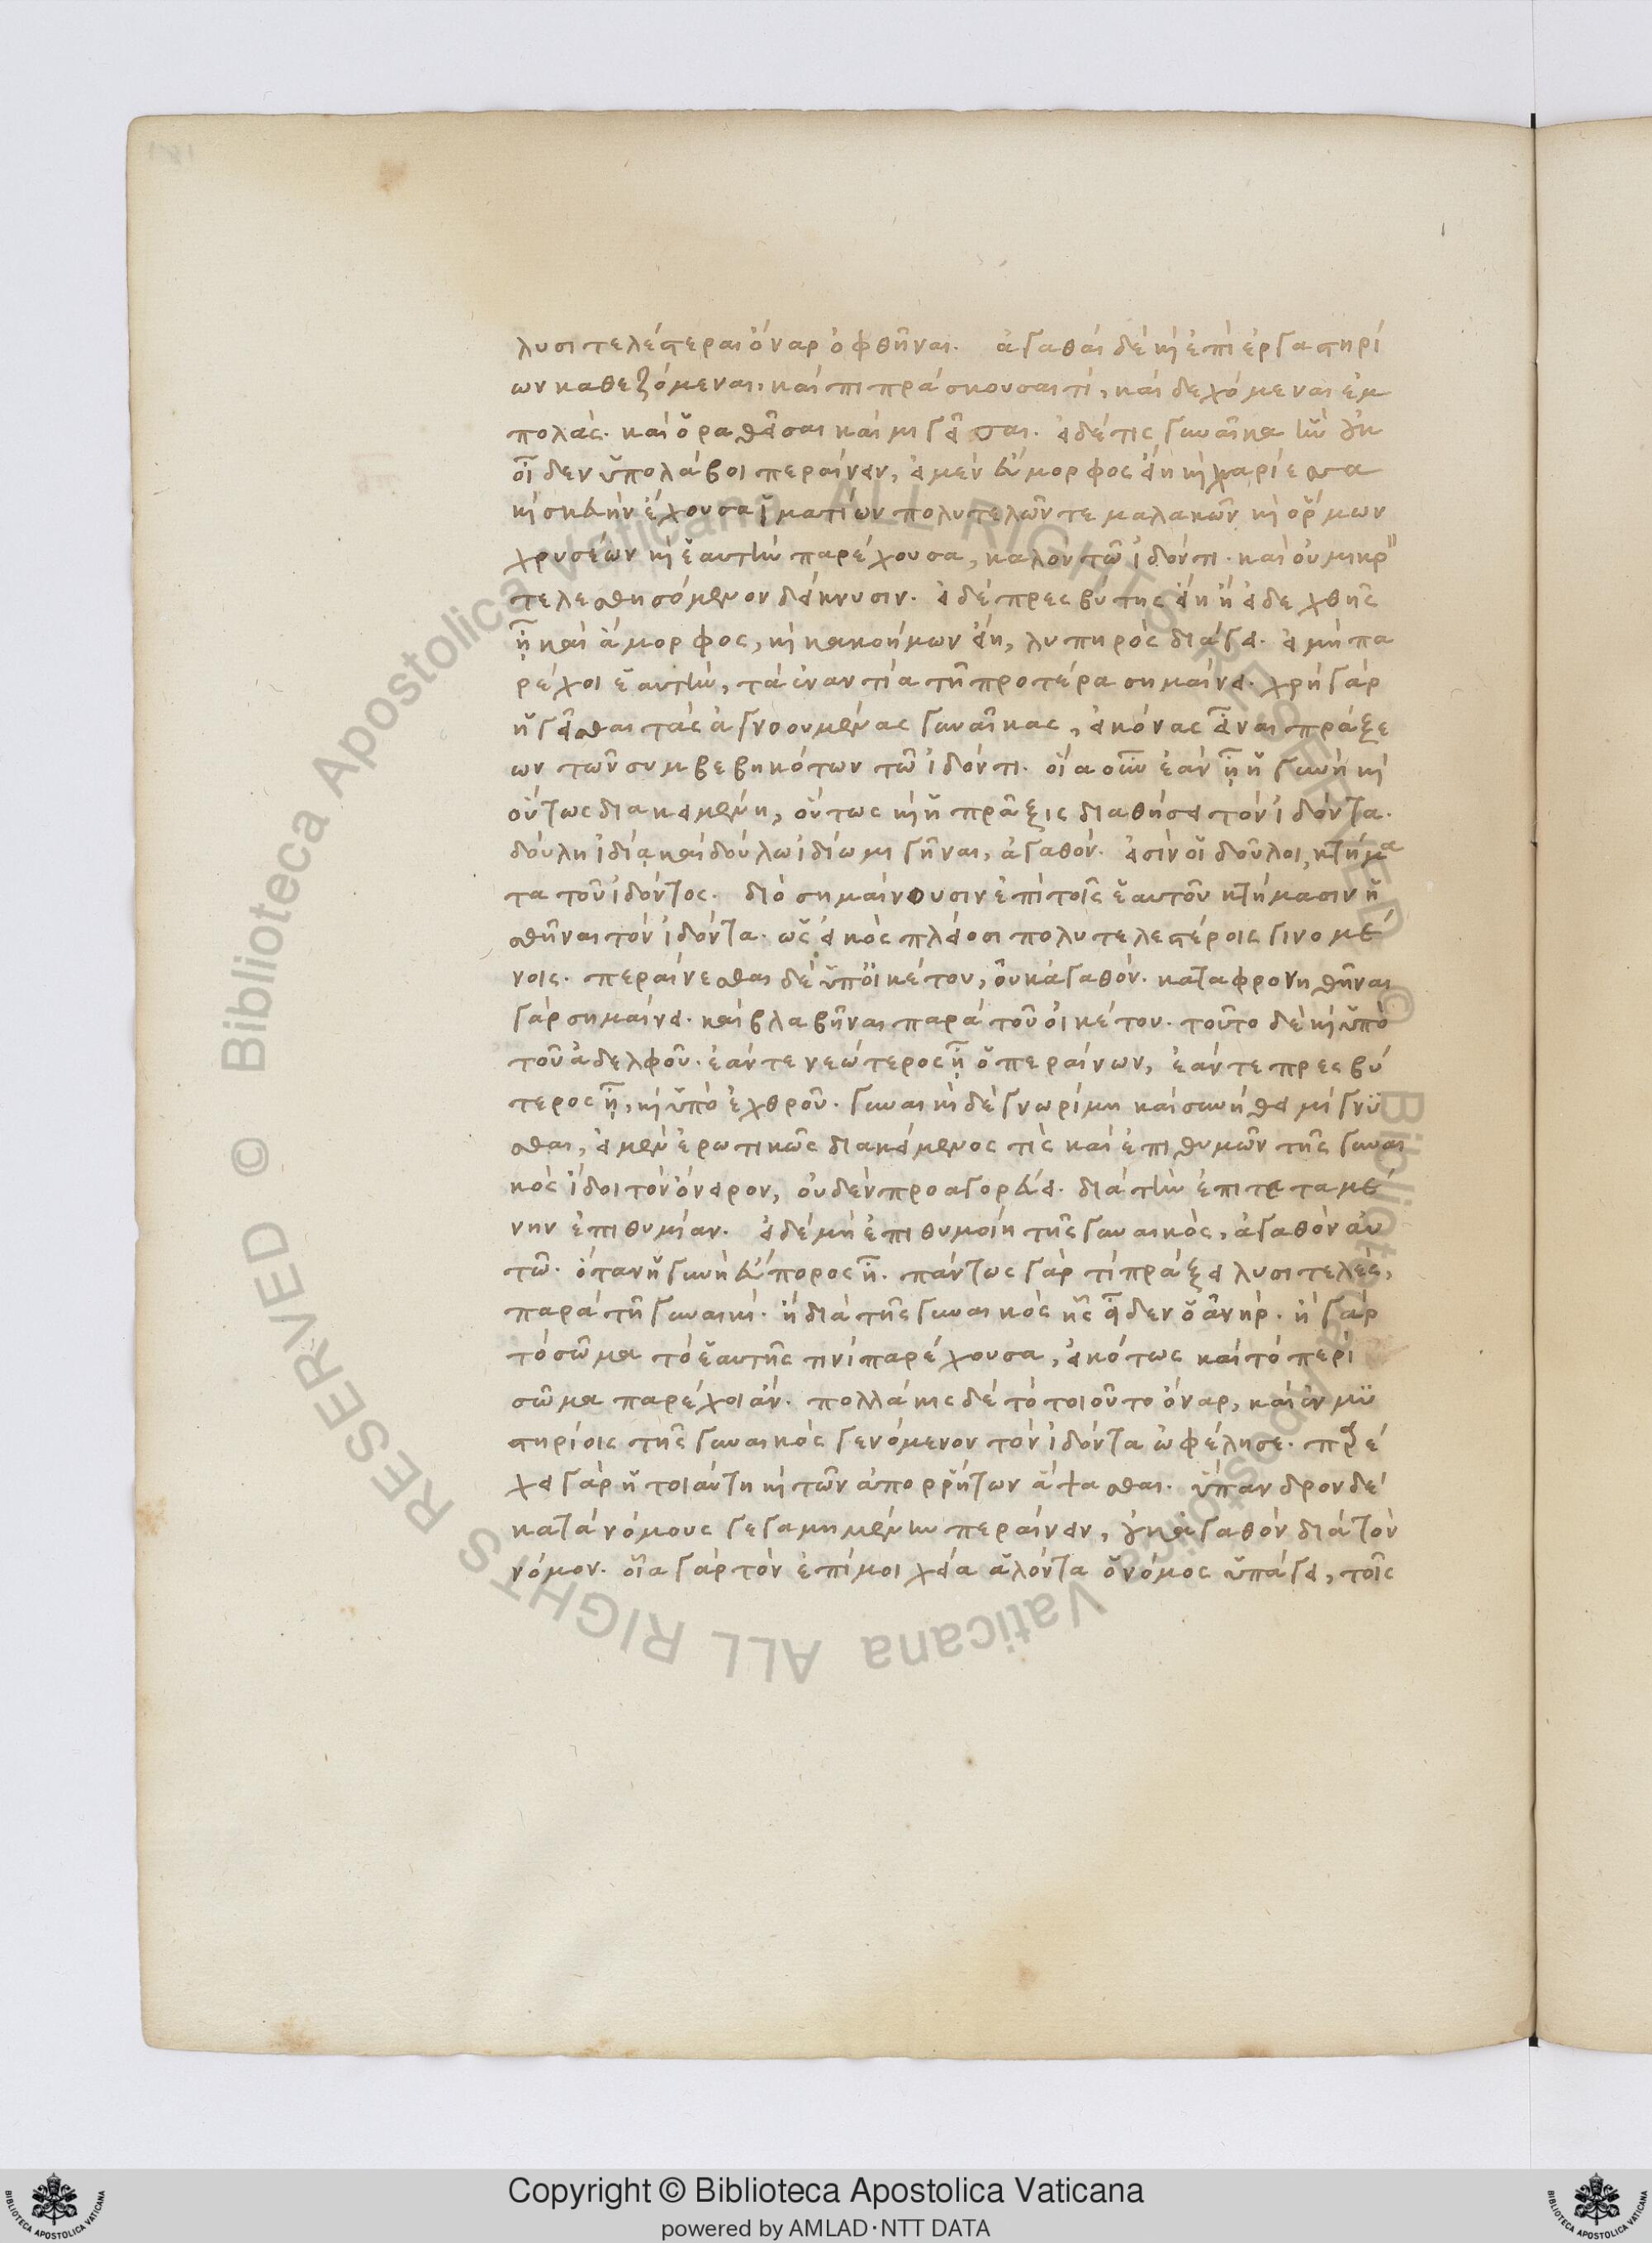 λυσιτελέστεραι ὄναρ ὀφθῆναι. ἀγαθαὶ δὲ καὶ ἐπὶ ἐργαστηρί
ων καθεζόμεναι. καὶ πιπράσκουσαι τί, καὶ δεχόμεναι ἐμ
πολάς. καὶ ὁραθεῖσαι καὶ μιγεῖσαι. εἰ δέ τις γυναῖκα ἣν οὐκ
οἶδεν ὑπολάβοι περαίνειν, εἰ μὲν εὔμορφος εἴη καὶ χαρίεσσα
καὶ σκευὴν ἔχουσα ἱματίων πολυτελῶν τε μαλακῶν καὶ ὅρμων
χρυσέων καὶ ἑαυτὴν παρέχουσα, καλὸν τῶ ἰδόντι. καὶ οὐ μικρὸν
τελεσθησόμενον δείκνυσιν. εἰ δὲ πρεσβύτης εἴη ἢ ἀειδεχθῆς
ᾖ καὶ ἄμορφος, καὶ κακοήμων εἴη, λυπηρὸς διάγει. εἰ μὴ πα
ρέχοι ἑαυτὴν, τὰ ἐναντία τῆ προτέρα σημαίνει. χρὴ γὰρ
ἡγεῖσθαι τὰς ἀγνοουμένας γυναῖκας, εἰκόνας εἶναι πράξε
ων τῶν συμβεβηκότων τῶ ἰδόντι. οἵα οὖν ἐὰν ᾖ ἡ γυνὴ καὶ
οὕτως διακειμένη, οὕτως καὶ ἡ πρᾶξις διαθήσει τὸν ἰδόντα.
δούλη ἰδίᾳ καὶ δούλω ἰδίω μιγῆναι, ἀγαθόν. εἰσὶν οἱ δοῦλοι κτήμα
τα τοῦ ἰδόντος. διὸ σημαίνουσιν ἐπὶ τοῖς ἑαυτοῦ κτήμασιν ἡ
σθῆναι τὸν ἰδόντα. ὡς εἰκὸς πλείοσι πολυτελεστέροις γινομέ
νοις. περαίνεσθαι δὲ ὑπὸ οἰκέτου, οὐκ ἀγαθόν. καταφρονηθῆναι
γὰρ σημαίνει. καὶ βλαβῆναι παρὰ τοῦ οἰκέτου. τοῦτο δὲ καὶ ὑπὸ
τοῦ ἀδελφοῦ. ἐάν τε νεώτερος ᾖ ὁ περαίνων, ἐάν τε πρεσβύ
τερος ᾖ, καὶ ὑπὸ ἐχθροῦ. γυναικὶ δὲ γνωρίμη καὶ συνήθει μίγνυ
σθαι, εἰ μὲν ἐρωτικῶς διακείμενος τὶς καὶ ἐπιθυμῶν τῆς γυναι
κὸς ἴδοι τὸν ὄνειρον, οὐδὲν προαγορεύει. διὰ τὴν ἐπιτεταμέ
νην ἐπιθυμίαν. εἰ δὲ μὴ ἐπιθυμοίη τῆς γυναικὸς, ἀγαθὸν αὐ
τῶ. ὅταν ἡ γυνὴ εὔπορος ᾖ. πάντως γὰρ τὶ πράξει λυσιτελὲς,
παρὰ τῆ γυναικὶ. ἢ διὰ τῆς γυναικὸς ἧς εἶδεν ὁ ἀνὴρ. ἡ γὰρ
τὸ σῶμα τὸ ἑαυτῆς τινὶ παρέχουσα, εἰκότως καὶ τὸ περὶ
σῶμα παρέχοι ἄν. πολλάκις δὲ τὸ τοιοῦτο ὄναρ, καὶ ἐν μυ
στηρίοις τῆς γυναικὸς γενόμενον τὸν ἰδόντα ὠφέλησε. παρέ
χει γὰρ ἡ τοιαύτη καὶ τῶν ἀπορρήτων ἅψασθαι. ὕπανδρον δὲ
κατὰ νόμους γεγαμημένην περαίνειν, οὐκ ἀγαθὸν διὰ τὸν
νόμον. οἷα γὰρ τὸν ἐπὶ μοιχεία ἁλόντα ὁ νόμος ὑπάγει, τοῖς
Copyright © Biblioteca Apostolica Vaticana
powered by AMLAD·NTT DATA